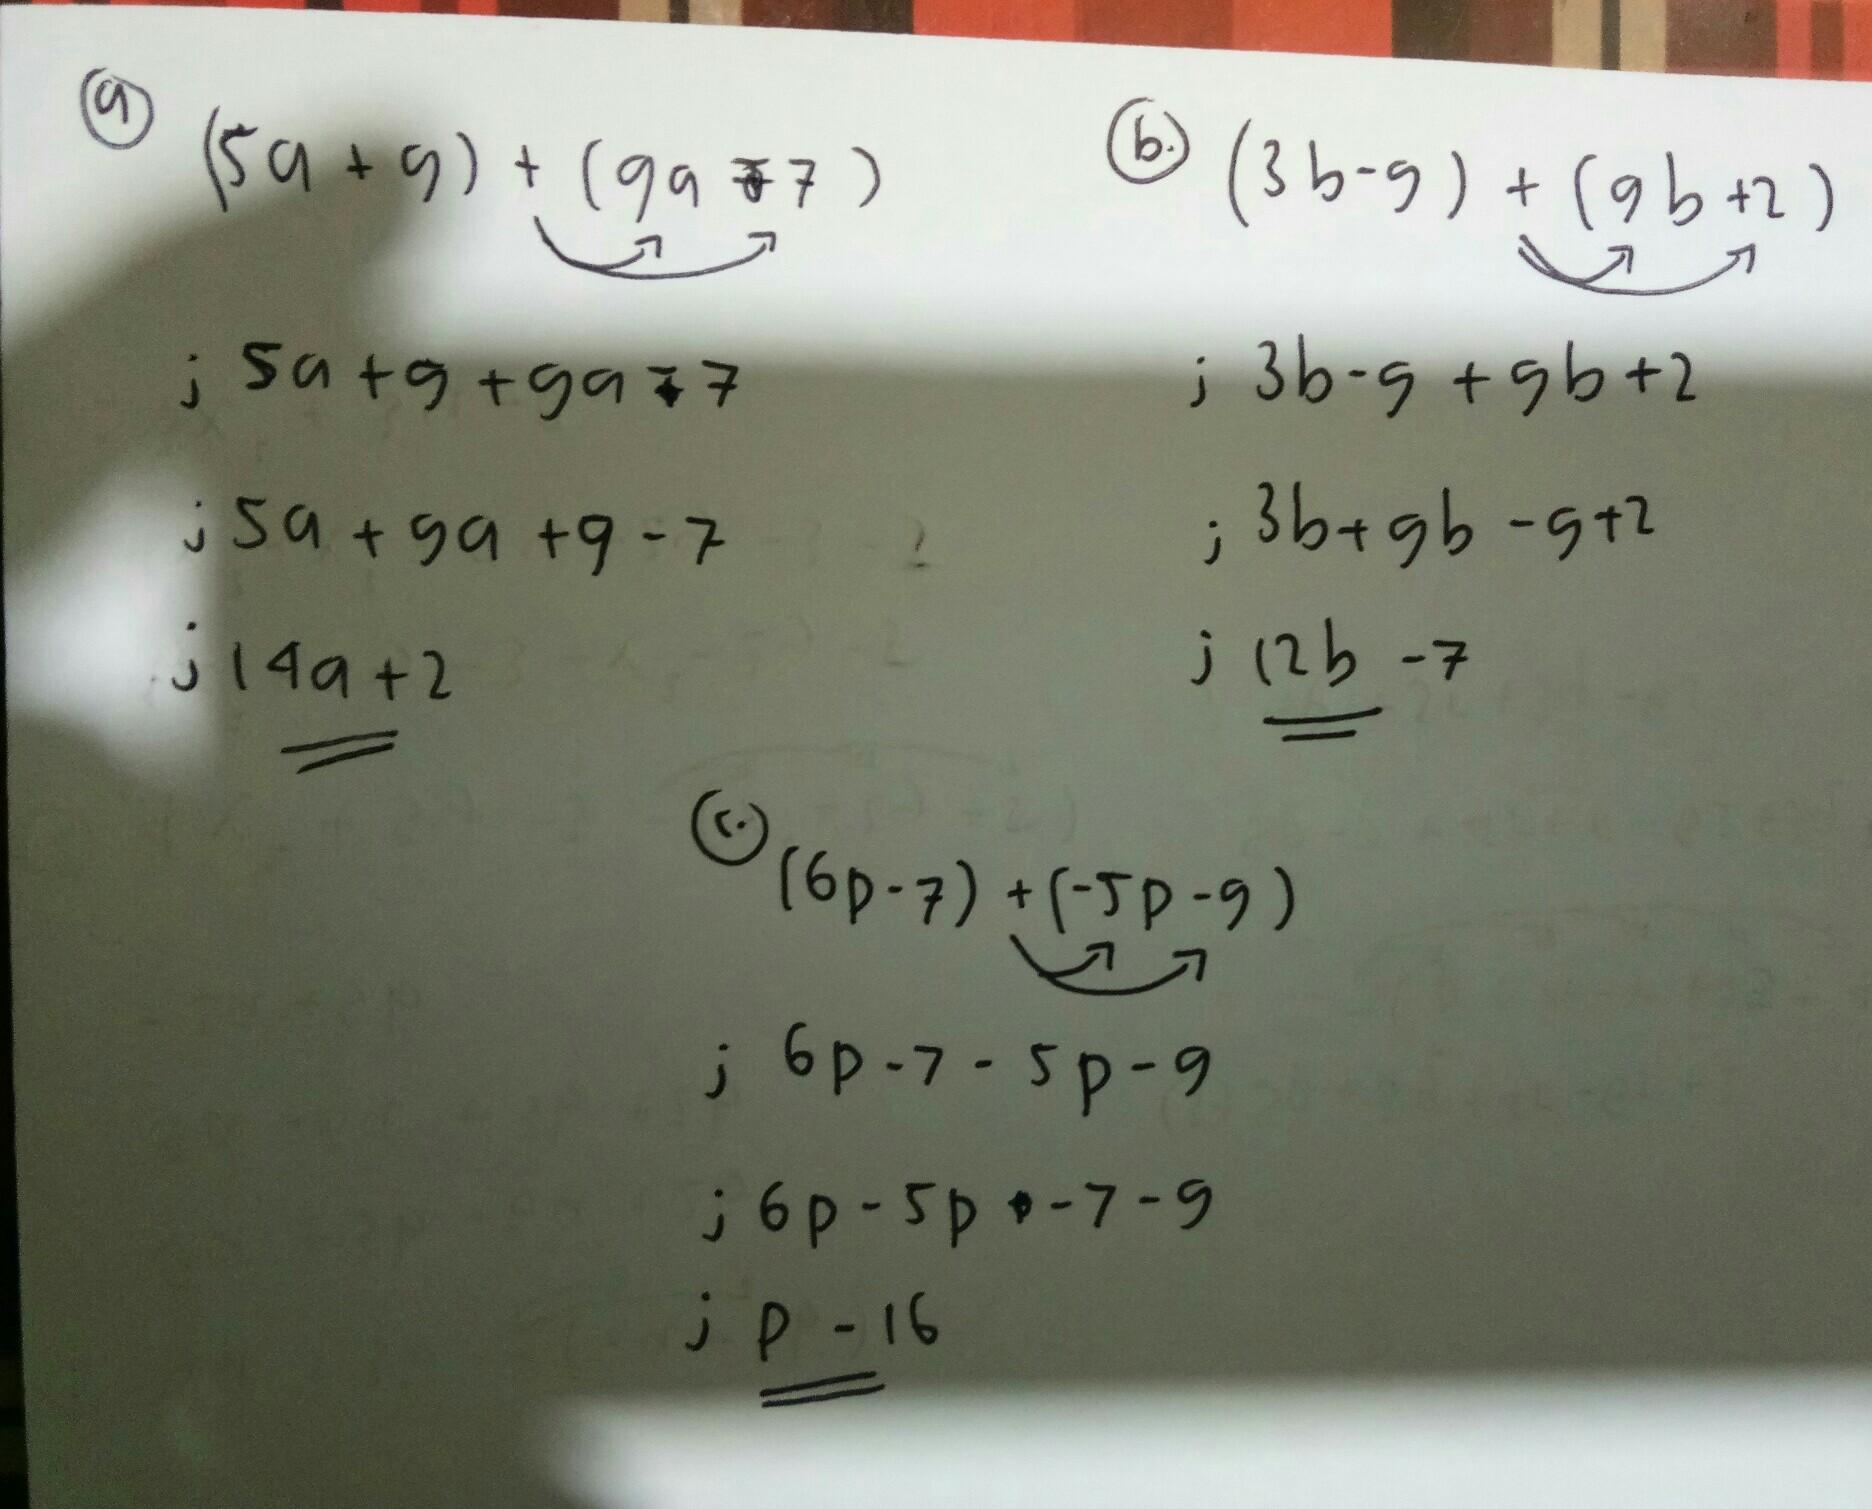 a (5a + 9) + (9a - 7)
; 5a + 9 + 9a - 7
; 5a + 9a + 9 - 7
; 14a + 2
b. (3b - 9) + (9b + 2)
; 3b - 9 + 9b + 2
; 3b + 9b - 9 + 2
; 12b - 7
c. (6p - 7) + (-5p - 9)
; 6p - 7 - 5p - 9
; 6p - 5p - 7 - 9
; p - 16